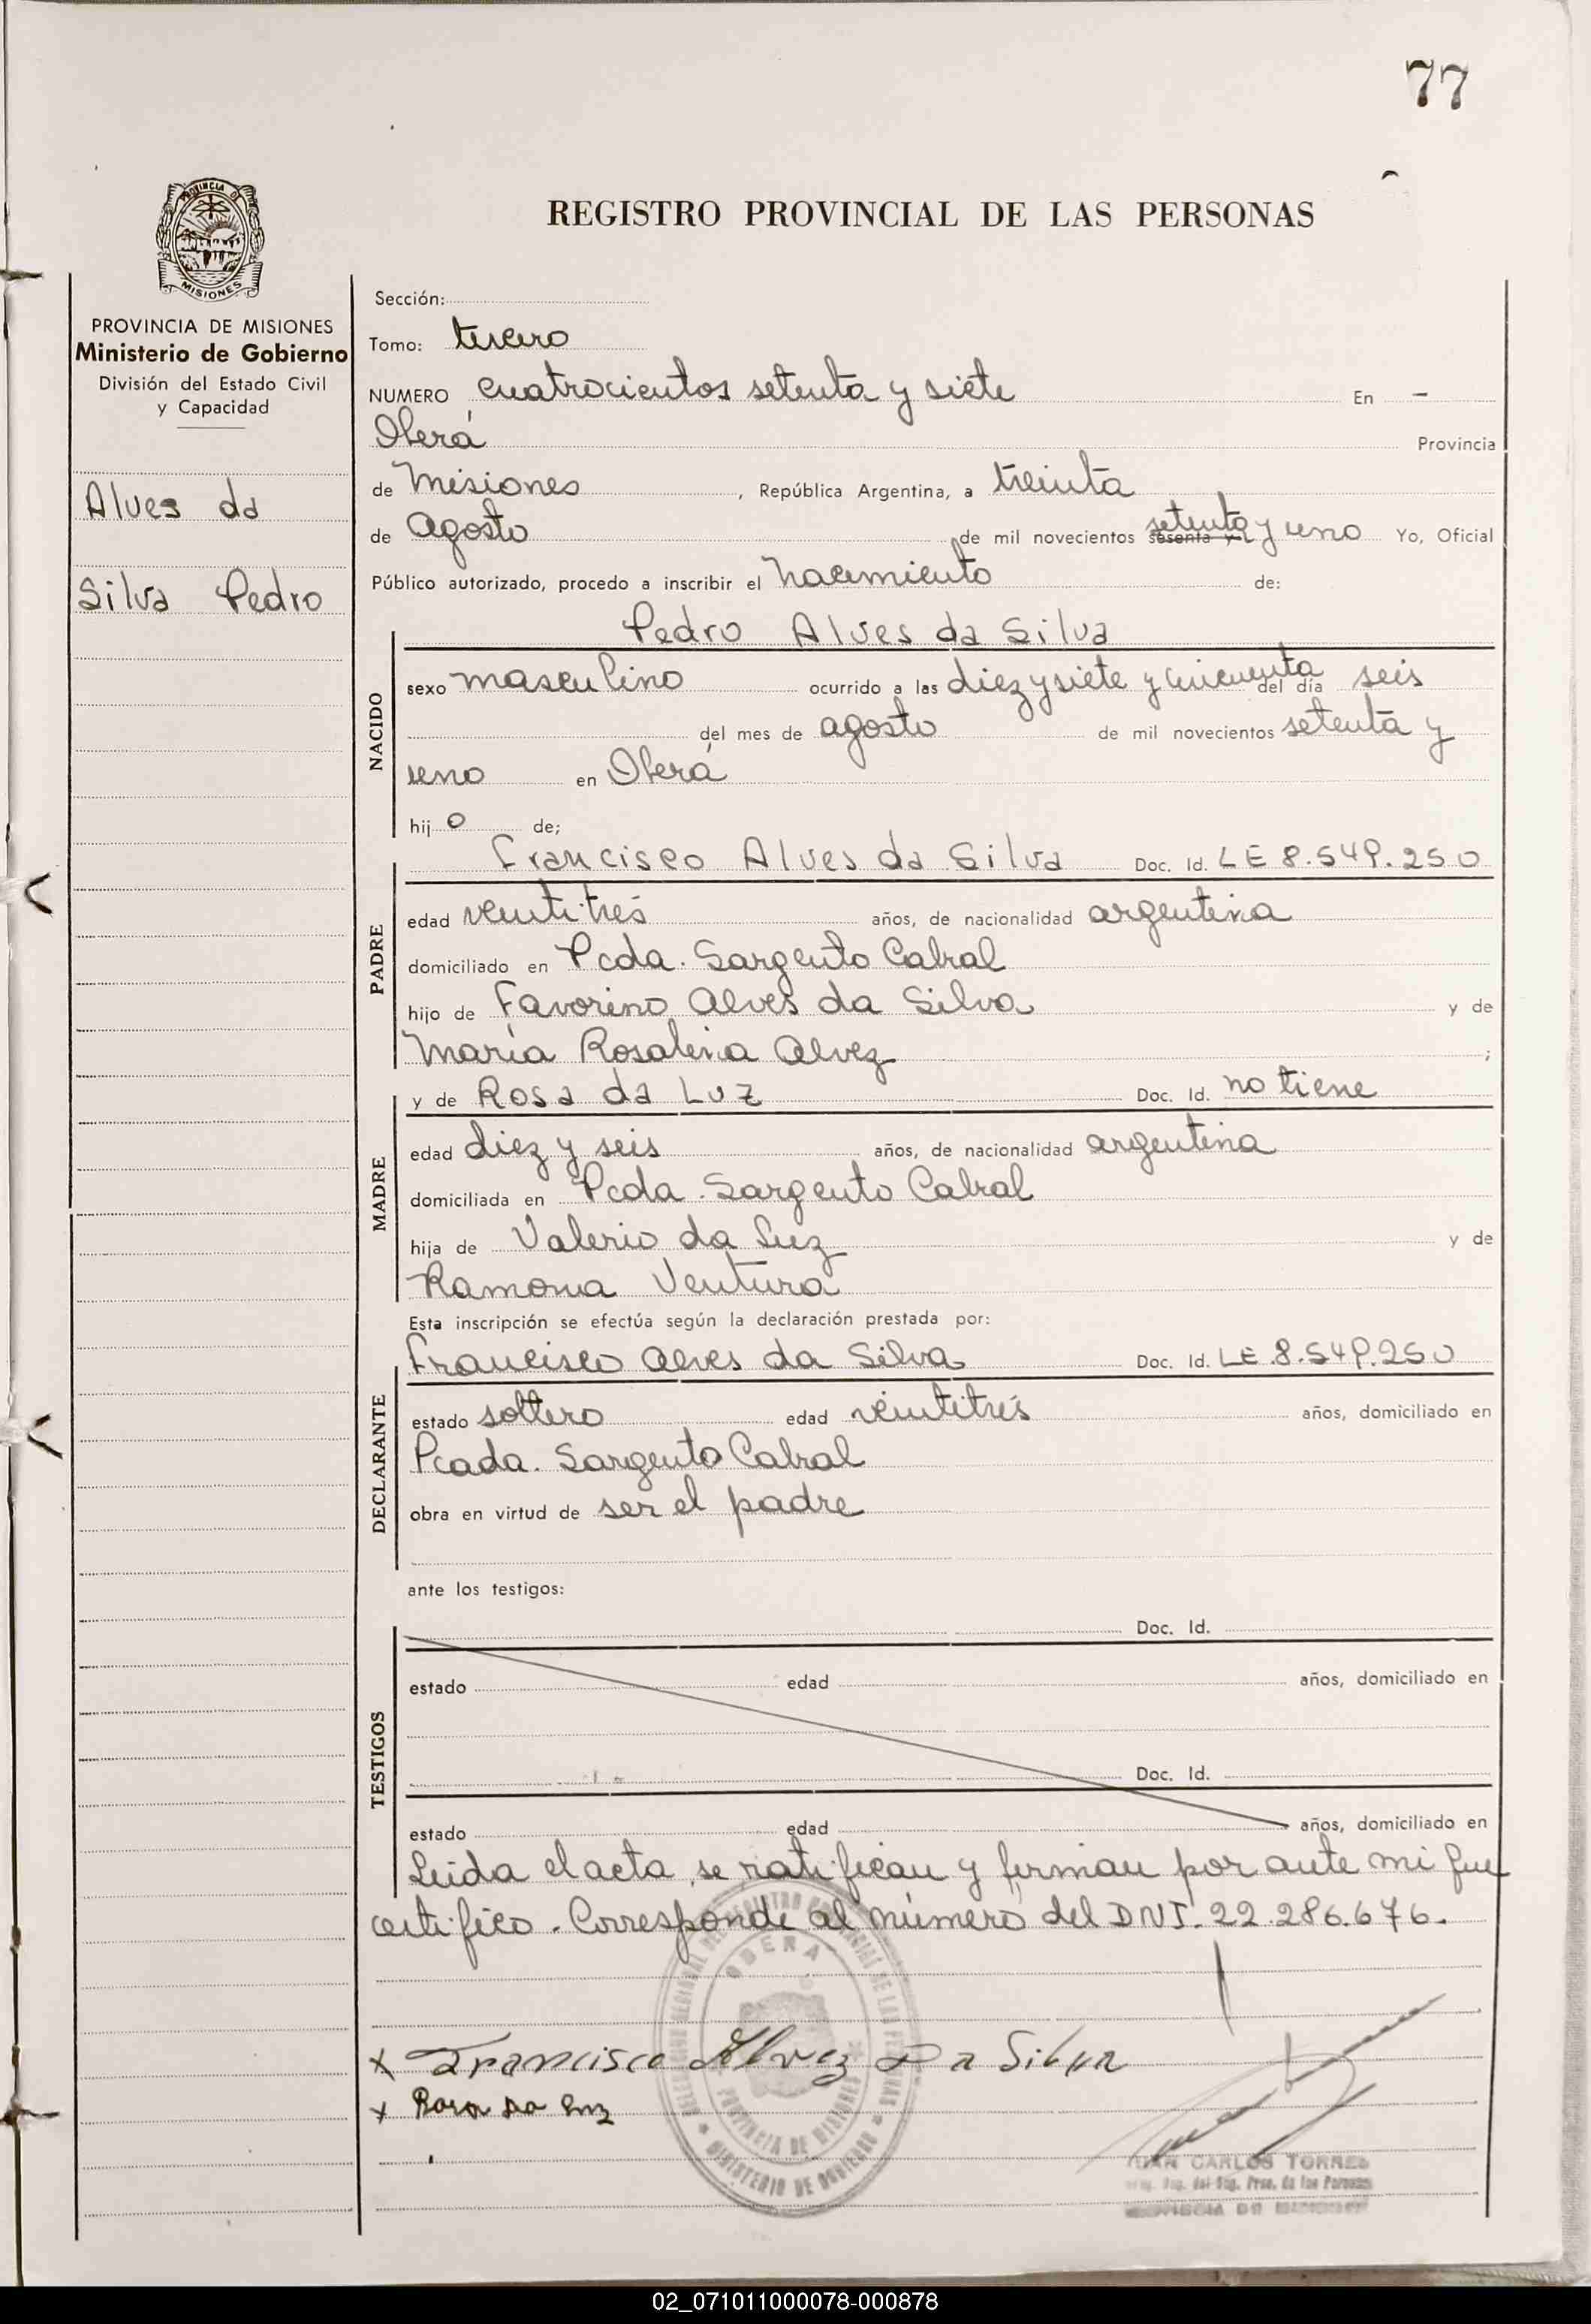 77
PROVINCIA DE
MISIONES
REGISTRO PROVINCIAL DE LAS PERSONAS
PROVINCIA DE MISIONES
Ministerio de Gobierno
División del Estado Civil
y Capacidad
Alves da
Silva Pedro
Sección:
Tomo: tercero
NUMERO cuatrocientos setenta y siete En -
Oberá Provincia
de Misiones, República Argentina, a treinta
de agosto de mil novecientos sesenta y setenta y uno Yo, Oficial
Público autorizado, procedo a inscribir el nacimiento de:
NACIDO
Pedro Alves da Silva
sexo masculino ocurrido a las diez y siete y cincuenta del día seis
del mes de agosto de mil novecientos setenta y
uno en Oberá
hijo de;
PADRE
Francisco Alves da Silva Doc. Id. LE 8.549.250
edad veintitrés años, de nacionalidad argentina
domiciliado en Pcda. Sargento Cabral
hijo de Favorino Alves da Silva y de
María Rosalina Alvez ;
MADRE
y de Rosa da Luz Doc. Id. no tiene
edad diez y seis años, de nacionalidad argentina
domiciliada en Pcda. Sargento Cabral
hija de Valerio da Luz y de
Ramona Ventura
Esta inscripción se efectúa según la declaración prestada por:
DECLARANTE
Francisco Alves da Silva Doc. Id. LE 8.549.250
estado soltero edad veintitrés años, domiciliado en
Pcada. Sargento Cabral
obra en virtud de ser el padre
ante los testigos:
TESTIGOS
Doc. Id.
estado edad años, domiciliado en
Doc. Id.
estado edad años, domiciliado en
Leída el acta, se ratifican y firman por ante mi que
certifico. Corresponde al número del DNI. 22.286.676.
OBERA
PROVINCIA DE MISIONES
MINISTERIO DE GOBIERNO
x Francisco Alvez Da Silva
x Rosa da Luz
JUAN CARLOS TORRES
PROVINCIA DE MISIONES
02_071011000078-000878